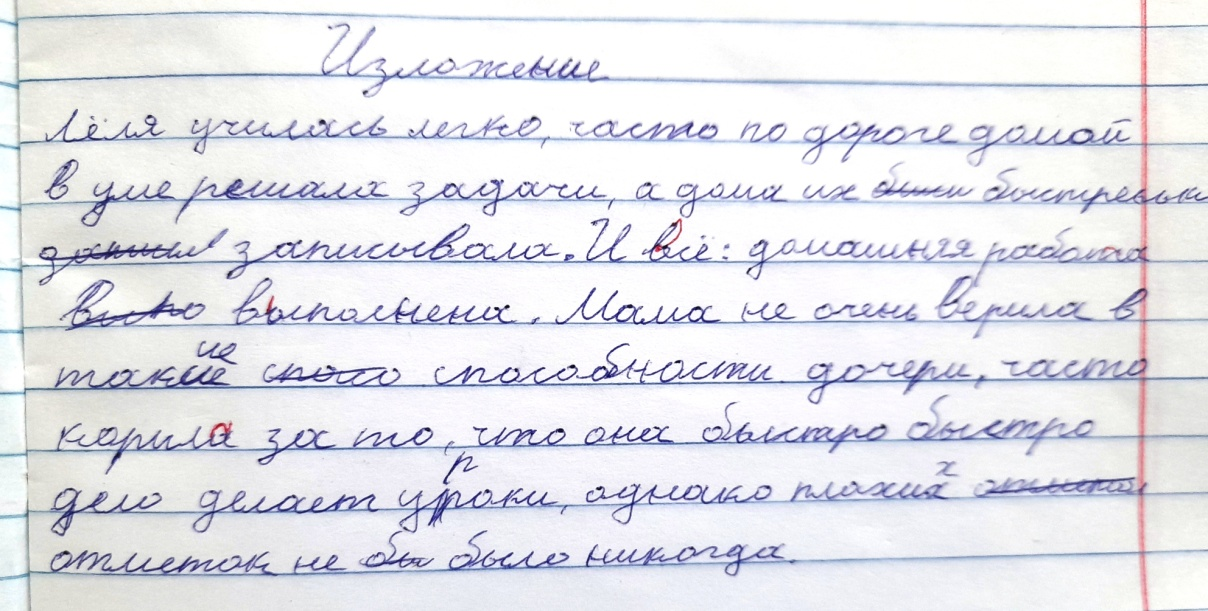 Изложение
Лёля училась легко, часто по дороге домой
в уме решала задачи, а дома их быстреньк
записывала. И всё: домашняя работа
выполнена. Мама не очень верила в
такие способности дочери, часто
корила за то, что она быстро быстро
дело делает уроки, однако плохих
отметок не было никогда.